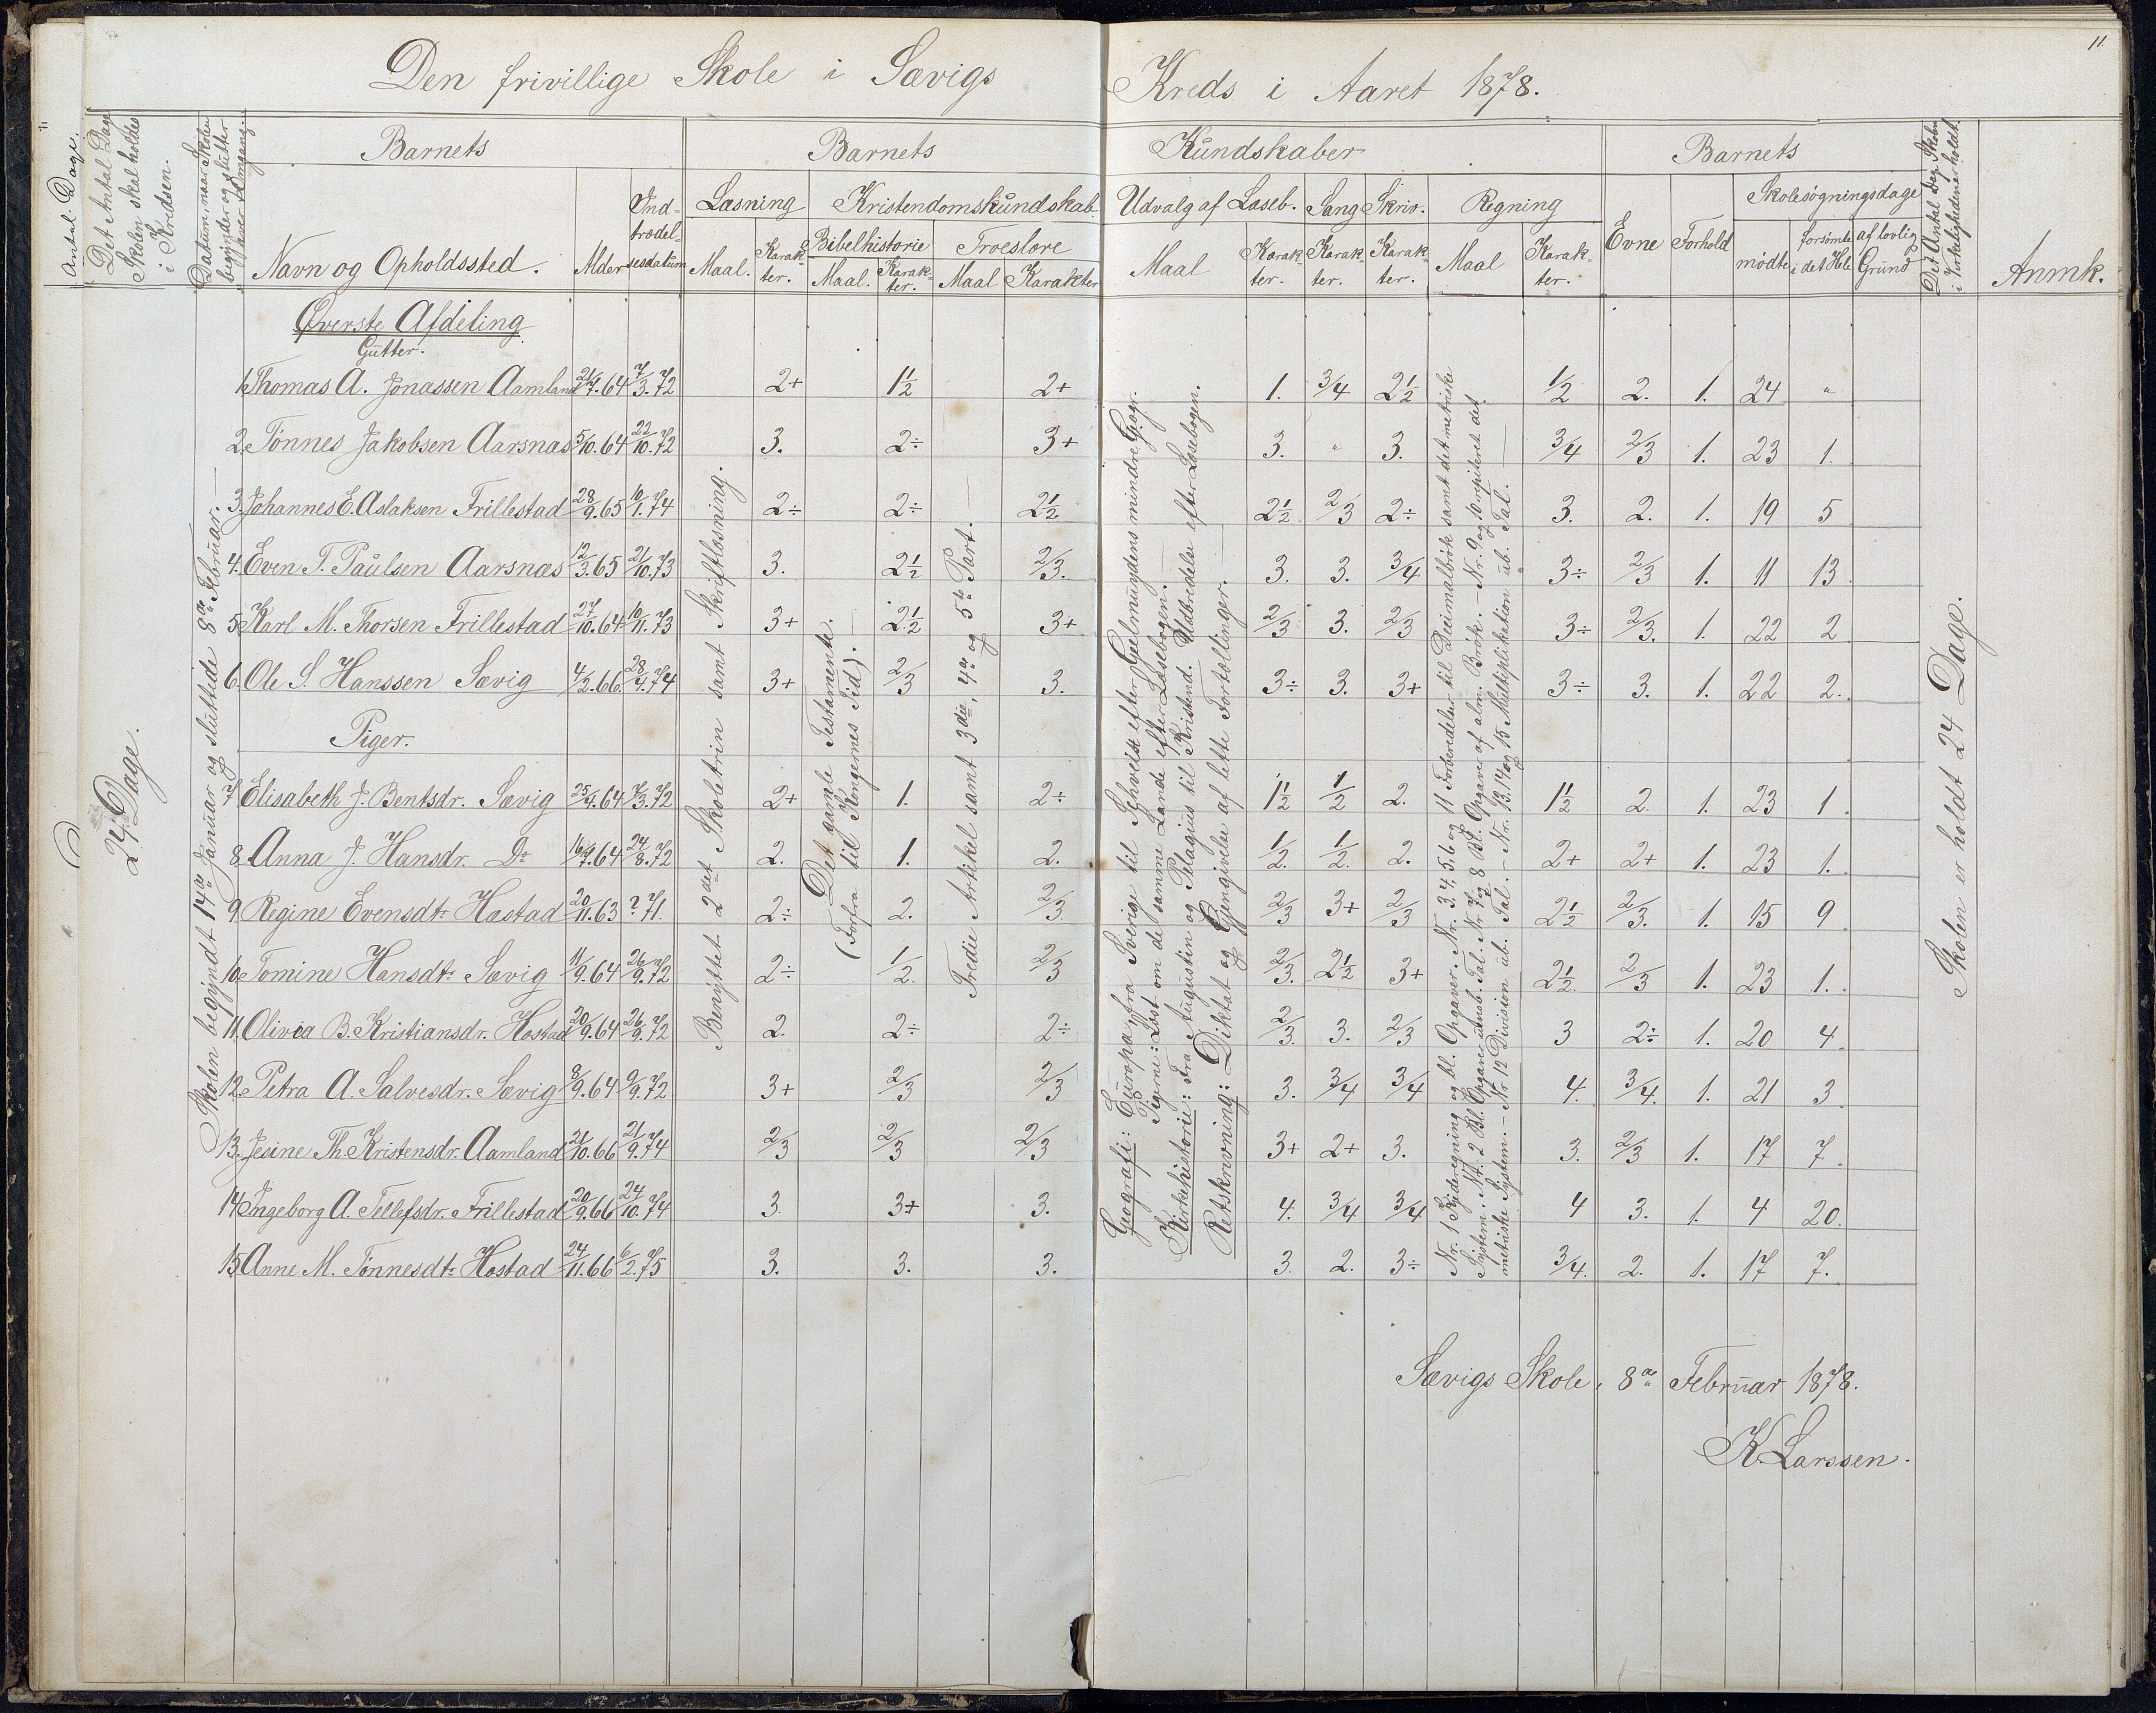 11
Den frivillige Skole i Sævigs Kreds i Aaret 1878.
Antal Dage.
Det Antal Dage Skolen skal holdes i Kredsen.
Datum, naar Skolen begynder og slutter hver Omgang.
Barnets
Navn og Opholdssted. Alder Indtrædelsesdatum
Barnets Kundskaber
Læsning Kristendomskundskab Udvalg af Læseb. Sang Skriv. Regning
Bibelhistorie Troeslære
Maal. Karakter. Maal. Karakter. Maal Karakter Maal Karakter. Karakter. Karakter. Maal Karakter.
Barnets
Evne Forhold Skolesøgningsdage
mødte forsømte i det Hele af lovlig Grund
Det Antal Dage Skolen i Virkeligheden er holdt.
Anmk.
24 Dage.
Skolen begyndt 14de Januar og sluttede 8de Februar.
Øverste Afdeling
Gutter.
1. Thomas A. Jonassen Aamland 21/7.64 7/3.72 2+ 1½ 2+ 1. 3/4 2½ 1/2 2. 1. 24 "
2. Tönnes Jakobsen Aarsnæs 5/10.64 22/10.72 3. 2÷ 3+ 3. " 3. 3/4 2/3 1. 23 1.
3. Johannes E. Aslaksen Frillestad 28/9.65 10/1.74 2÷ 2÷ 2½ 2½ 2/3 2÷ 3. 2. 1. 19 5
4. Even T. Paulsen Aarsnæs 12/3.65 21/10.73 3. 2½ 2/3. 3. 3. 3/4 3÷ 2/3 1. 11 13
5. Karl M. Thorsen Frillestad 27/10.64 10/11.73 3+ 2½ 3+ 2/3 3. 2/3 3÷ 2/3. 1. 22 2
6. Ole S. Hanssen Sævig 4/2.66. 28/4.74 3+ 2/3 3. 3÷ 3. 3+ 3÷ 3. 1. 22 2.
Piger.
7. Elisabeth J. Bentsdr. Sævig 25/4.64 7/3.72 2+ 1. 2÷ 1½ 1/2 2. 1½ 2. 1. 23 1.
8. Anna J. Hansdr. Do 16/7.64 24/8.72 2. 1. 2. 1/2. 1/2. 2. 2+ 2+ 1. 23 1.
9. Regine Evensdtr Hæstad 20/11.63 ? 71. 2÷ 2. 2/3. 2/3 3+ 2/3 2½ 2/3. 1. 15 9
10. Tomine Hansdtr Sævig 11/9.64 26/9.72 2÷ 1/2. 2/3 2/3. 2½ 3+ 2½. 2/3 1. 23 1.
11. Olivia B. Kristiansdr. Hæstad 20/9.64 26/9.72 2. 2÷ 2÷ 2/3. 3. 2/3 3 2÷ 1. 20 4
12. Petra A. Salvesdr. Sævig 8/9.64 9/9.72 3+ 2/3 2/3 3. 3/4 3/4 4. 3/4. 1. 21 3
13. Jesine Th. Kristensdr. Aamland 21/10.66 21/9.74 2/3 2/3 2/3 3+ 2+ 3. 3. 2/3 1. 17 7.
14. Ingeborg A. Tellefsdr. Frillestad 20/9.66 24/10.74 3. 3+ 3. 4. 3/4 3/4 4 3. 1. 4 20.
15. Anne M. Tönnesdtr Hæstad 24/11.66 6/2.75 3. 3. 3. 3. 2. 3÷ 3/4. 2. 1. 17 7.
Benyttet 2det Skoletrin samt Skriftlæsning.
Det gamle Testamente.
(Forfra til Kongernes Tid).
Tredie Artikel samt 3die, 4de og 5te Part.
Geografi: Europa, fra Sverige til Schveits efter Geelmuydens mindre Geogr.
Pigerne: Læst om de samme Lande efter Læsebogen.
Kirkehistorie: Fra Augustin og Pelagius til Kristend. Udbredelse efter Læsebogen.
Retskrivning: Diktat og Gjengivelse af lette Fortællinger.
Nr. 1 Kjederegning og bl. Opgaver. Nr. 3, 4, 5, 6 og 11 Forberedelser til Decimalbrök samt det metriske
System. Nr. 2 Bl. Opgaver ubenb. Tal. Nr. 7 og 8 Bl. Opgaver af alm. Brök. Nr. 9 og 10 repiteret det
metriske System. Nr 12 Division ub. Tal. Nr. 13, 14 og 15 Multiplikation ub. Tal.
Skolen er holdt 24 Dage.
Sævigs Skole, 8de Februar 1878.
K. Larssen.